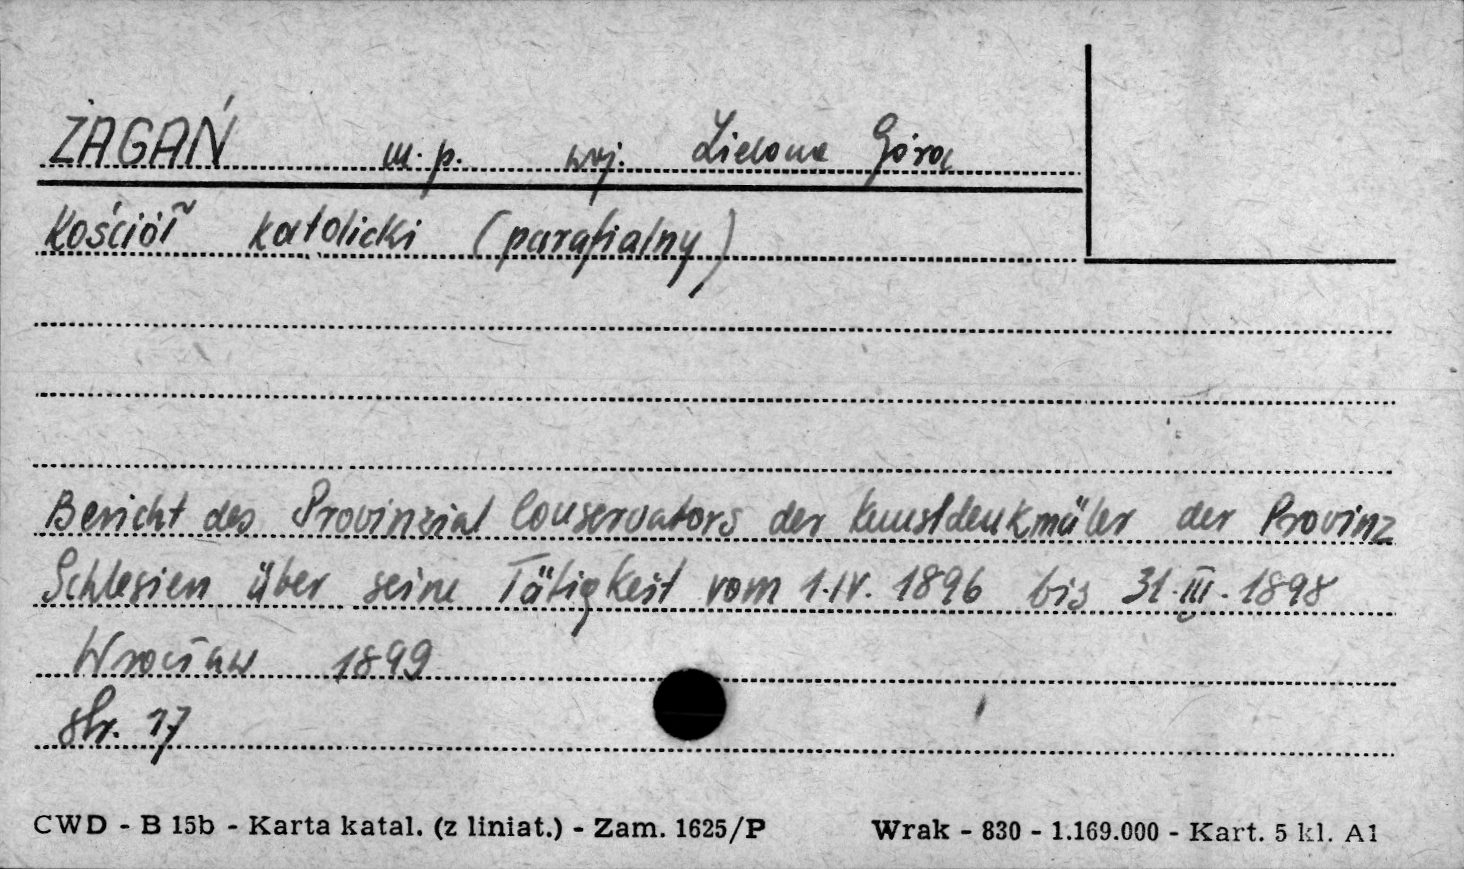 ŻAGAŃ m.p. woj. Zielona Góra
Kościół katolicki (parafialny)
Bericht des Provinzial Conservators der Kunstdenkmäler der Provinz
Schlesien über seine Tätigkeit vom 1.IV. 1896 bis 31.III.1898
Wrocław 1899
str. 17
CWD - B 15b - Karta katal. (z liniat.) - Zam. 1625/P Wrak - 830 - 1.169.000 - Kart. 5 kl. A1